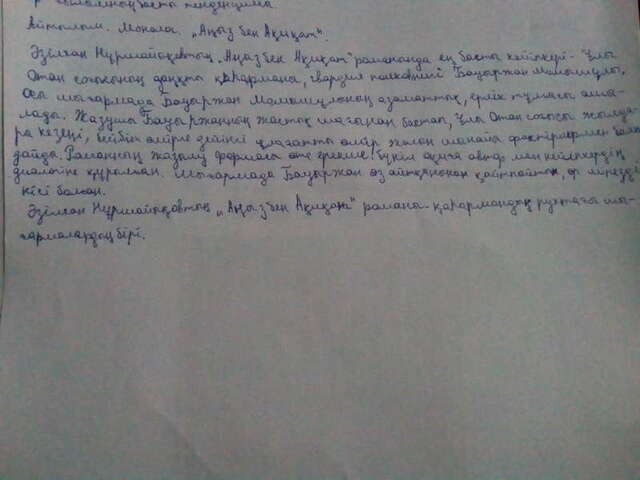 басты тенденцияла
Айтылым. Монолог. „Аңыз бен Ақиқат“.
Әзілхан Нұршайықовтың „Аңыз бен Ақиқат“ романында ең басты кейіпкері - Ұлы
Отан соғысының даңқты қаһарманы, гвардия полковнигі Бауыржан Момышұлы.
Осы шығармада Бауыржан Момышұлының азаматтық, ерлік тұлғасы
лады. Жазушы Бауыржанның жастық шағынан бастап, Ұлы Отан соғысы жылда-
ра кезеңі, бейбіт өмірге дейінгі өмір жолын шынайы фактілермен баян
дайды. Романның жазылу формасы өте ерекше. Бүкіл оқиға автор мен кейіпкердің
диалогіне құрылған. Шығармада Бауыржан өз айтқанынан қайтпайтын, ор мінезді
кісі болған.
Әзілхан Нұршайықовтың „Аңыз бен Ақиқат“ романы қаһармандық рухтағы шы-
ғармалардың бірі.